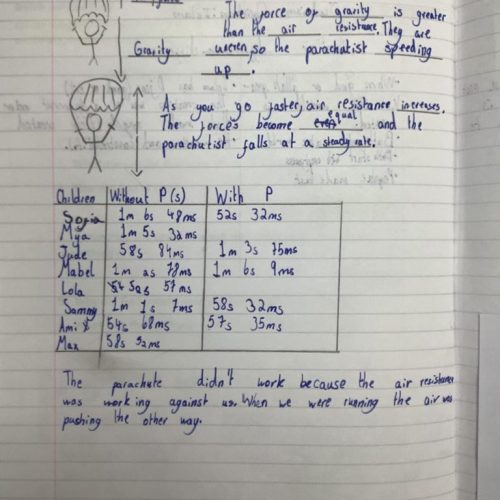 The force of gravity is greater
than the air resistance. They are
Gravity uneven, so the parachutist speeding
up.
As you go faster, air resistance increases.
The forces become equal and the
parachutist falls at a steady rate.
Children Without P (s) With P
Sofia 1m 6s 48ms 52s 32ms
Mya 1m 5s 32ms
Jude 58s 84ms 1m 3s 75ms
Mabel 1m 2s 78ms 1m 6s 9ms
Lola 57ms
Sammy 1m 1s 7ms 58s 32ms
Ami 54s 68ms 57s 35ms
Max 58s 32ms
The parachute didn't work because the air resistance
was working against us. When we were running the air was
pushing the other way.